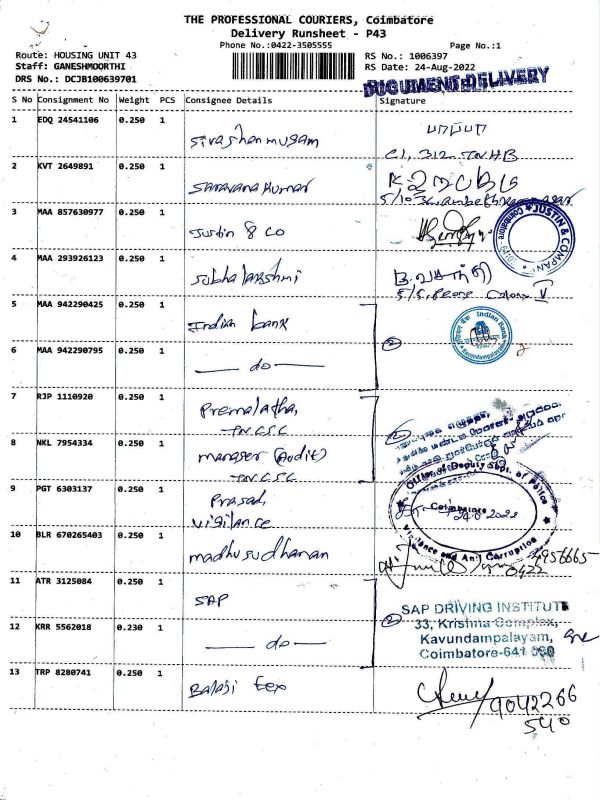 THE PROFESSIONAL COURIERS, Coimbatore
Delivery Runsheet - P43
Phone No.:0422-3505555
Page No.:1
Route: HOUSING UNIT 43
RS No.: 1006397
Staff: GANESHMOORTHI
RS Date: 24-Aug-2022
DRS No.: DCJB100639701
DOCUMENT DELIVERY
S No Consignment No Weight PCS Consignee Details Signature
1 EDQ 24541106 0.250 1
Sivashanmugam
பாப்பா
C1, 312 TNHB
2 KVT 2649891 0.250 1
Saravana Kumar
3 MAA 857630977 0.250 1
Justin & Co
JUSTIN & COMPANY
Coimbatore
4 MAA 293926123 0.250 1
Subhalakshmi
5/5, Peace Colony V
5 MAA 942290425 0.250 1
Indian bank
Indian Bank
Kavundampalayam
2
6 MAA 942290795 0.250 1
— do —
7 RJP 1110920 0.250 1
Premalatha,
TNCSC
8 NKL 7954334 0.250 1
manager (Audit)
TNCSC
9 PGT 6303137 0.250 1
Prasad,
vigilance
Office of Deputy Supt. of Police
Coimbatore
Vigilance and Anti Corruption
10 BLR 670265403 0.250 1
madhusudhanan
0422
11 ATR 3125084 0.250 1
SAP
2
SAP DRIVING INSTITUTE
33, Krishna Complex,
Kavundampalayam,
Coimbatore-641 030
12 KRR 5562018 0.230 1
— do —
13 TRP 8280741 0.250 1
Balaji tex
9042266
540